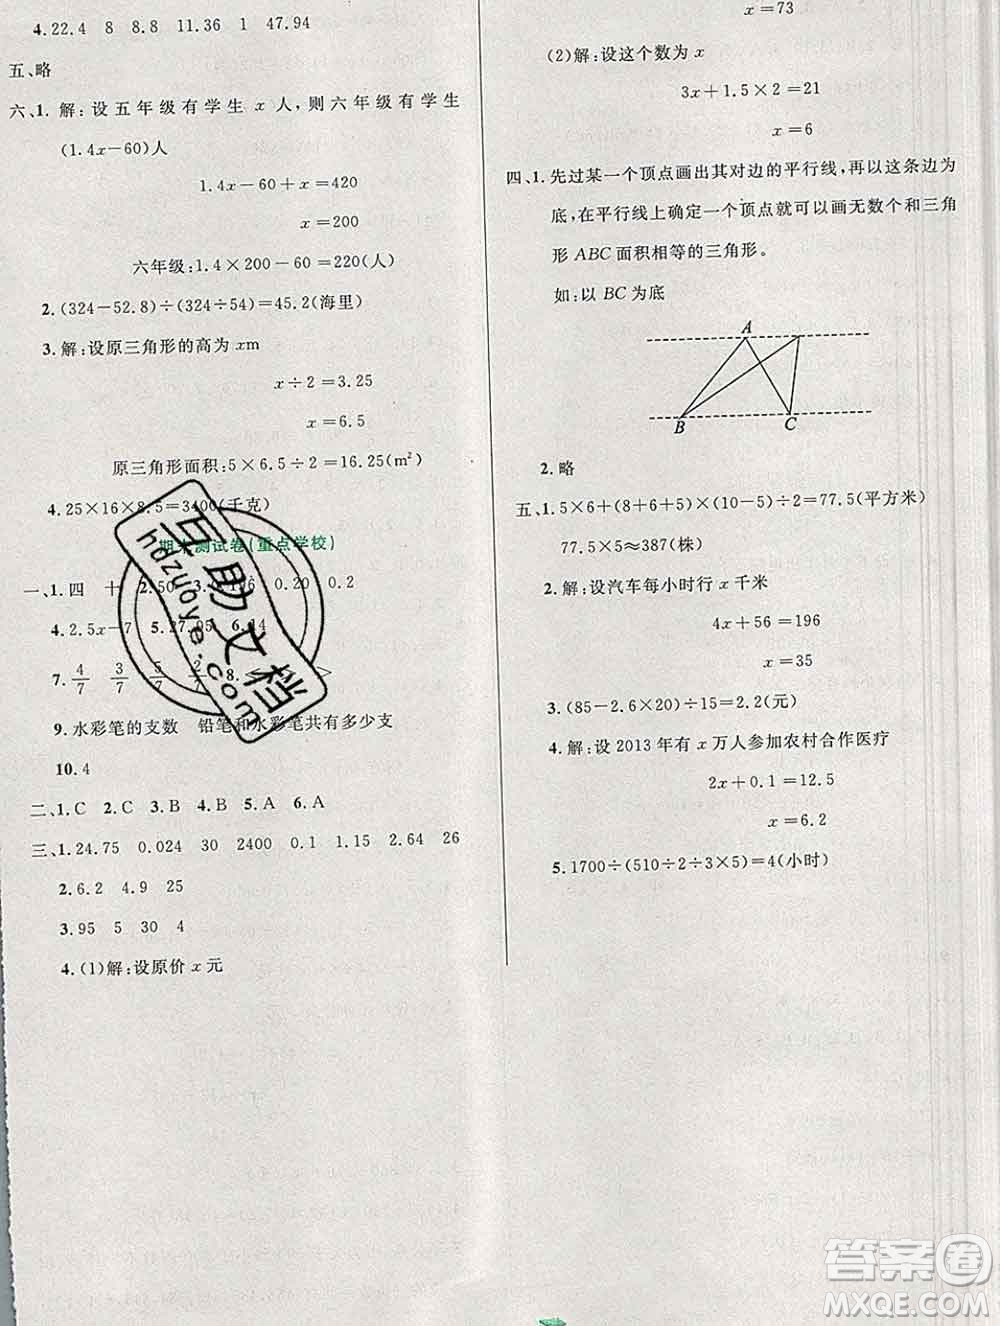 4.22.4 8 8.8 11.36 1 47.94
五、略
六、1. 解:设五年级有学生 x 人,则六年级有学生
(1.4x−60)人
1.4x−60+x=420
x=200
六年级:1.4×200−60=220(人)
2.(324−52.8)÷(324÷54)=45.2(海里)
3.解:设原三角形的高为 xm
x÷2=3.25
x=6.5
原三角形面积:5×6.5÷2=16.25(m²)
4.25×16×8.5=3400(千克)
期末测试卷(重点学校)
一、1.四 十 2.50 0.20 0.2
4.2.5x−7 5.27.05 6.14
7. 4/7 3/7 8.
9.水彩笔的支数 铅笔和水彩笔共有多少支
10.4
二、1.C 2.C 3.B 4.B 5.A 6.A
三、1.24.75 0.024 30 2400 0.1 1.15 2.64 26
2.6.2 4.9 25
3.95 5 30 4
4.(1)解:设原价 x 元
x=73
(2)解:设这个数为 x
3x+1.5×2=21
x=6
四、1.先过某一个顶点画出其对边的平行线,再以这条边为
底,在平行线上确定一个顶点就可以画无数个和三角
形 ABC 面积相等的三角形。
如:以 BC 为底
A
B
C
2.略
五、1.5×6+(8+6+5)×(10−5)÷2=77.5(平方米)
77.5×5≈387(株)
2.解:设汽车每小时行 x 千米
4x+56=196
x=35
3.(85−2.6×20)÷15=2.2(元)
4.解:设 2013 年有 x 万人参加农村合作医疗
2x+0.1=12.5
x=6.2
5.1700÷(510÷2÷3×5)=4(小时)
互助文档
hdzuoye.com
答案圈
MXQE.COM